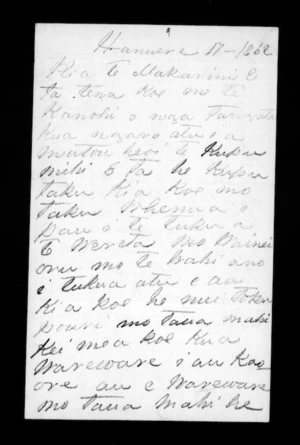 Hanuere 17 - 1862
Kia te Makarini E
ta tena koe mo te
Kanohi o nga Tangata
Kua ngaro atu e a
matou heoi te Kupu
mihi E ta he Kupu
taku Kia koe mo
taku Whenua i
pau i te tuku a
te Wereta mo Wainei
oru mo te wahi ano
i tukua atu e au
Kia koe he nui toku
pouri mo taua mahi
Kei mea koe Kua
Wareware i au Kao
ore au e Wareware
mo taua mahi he